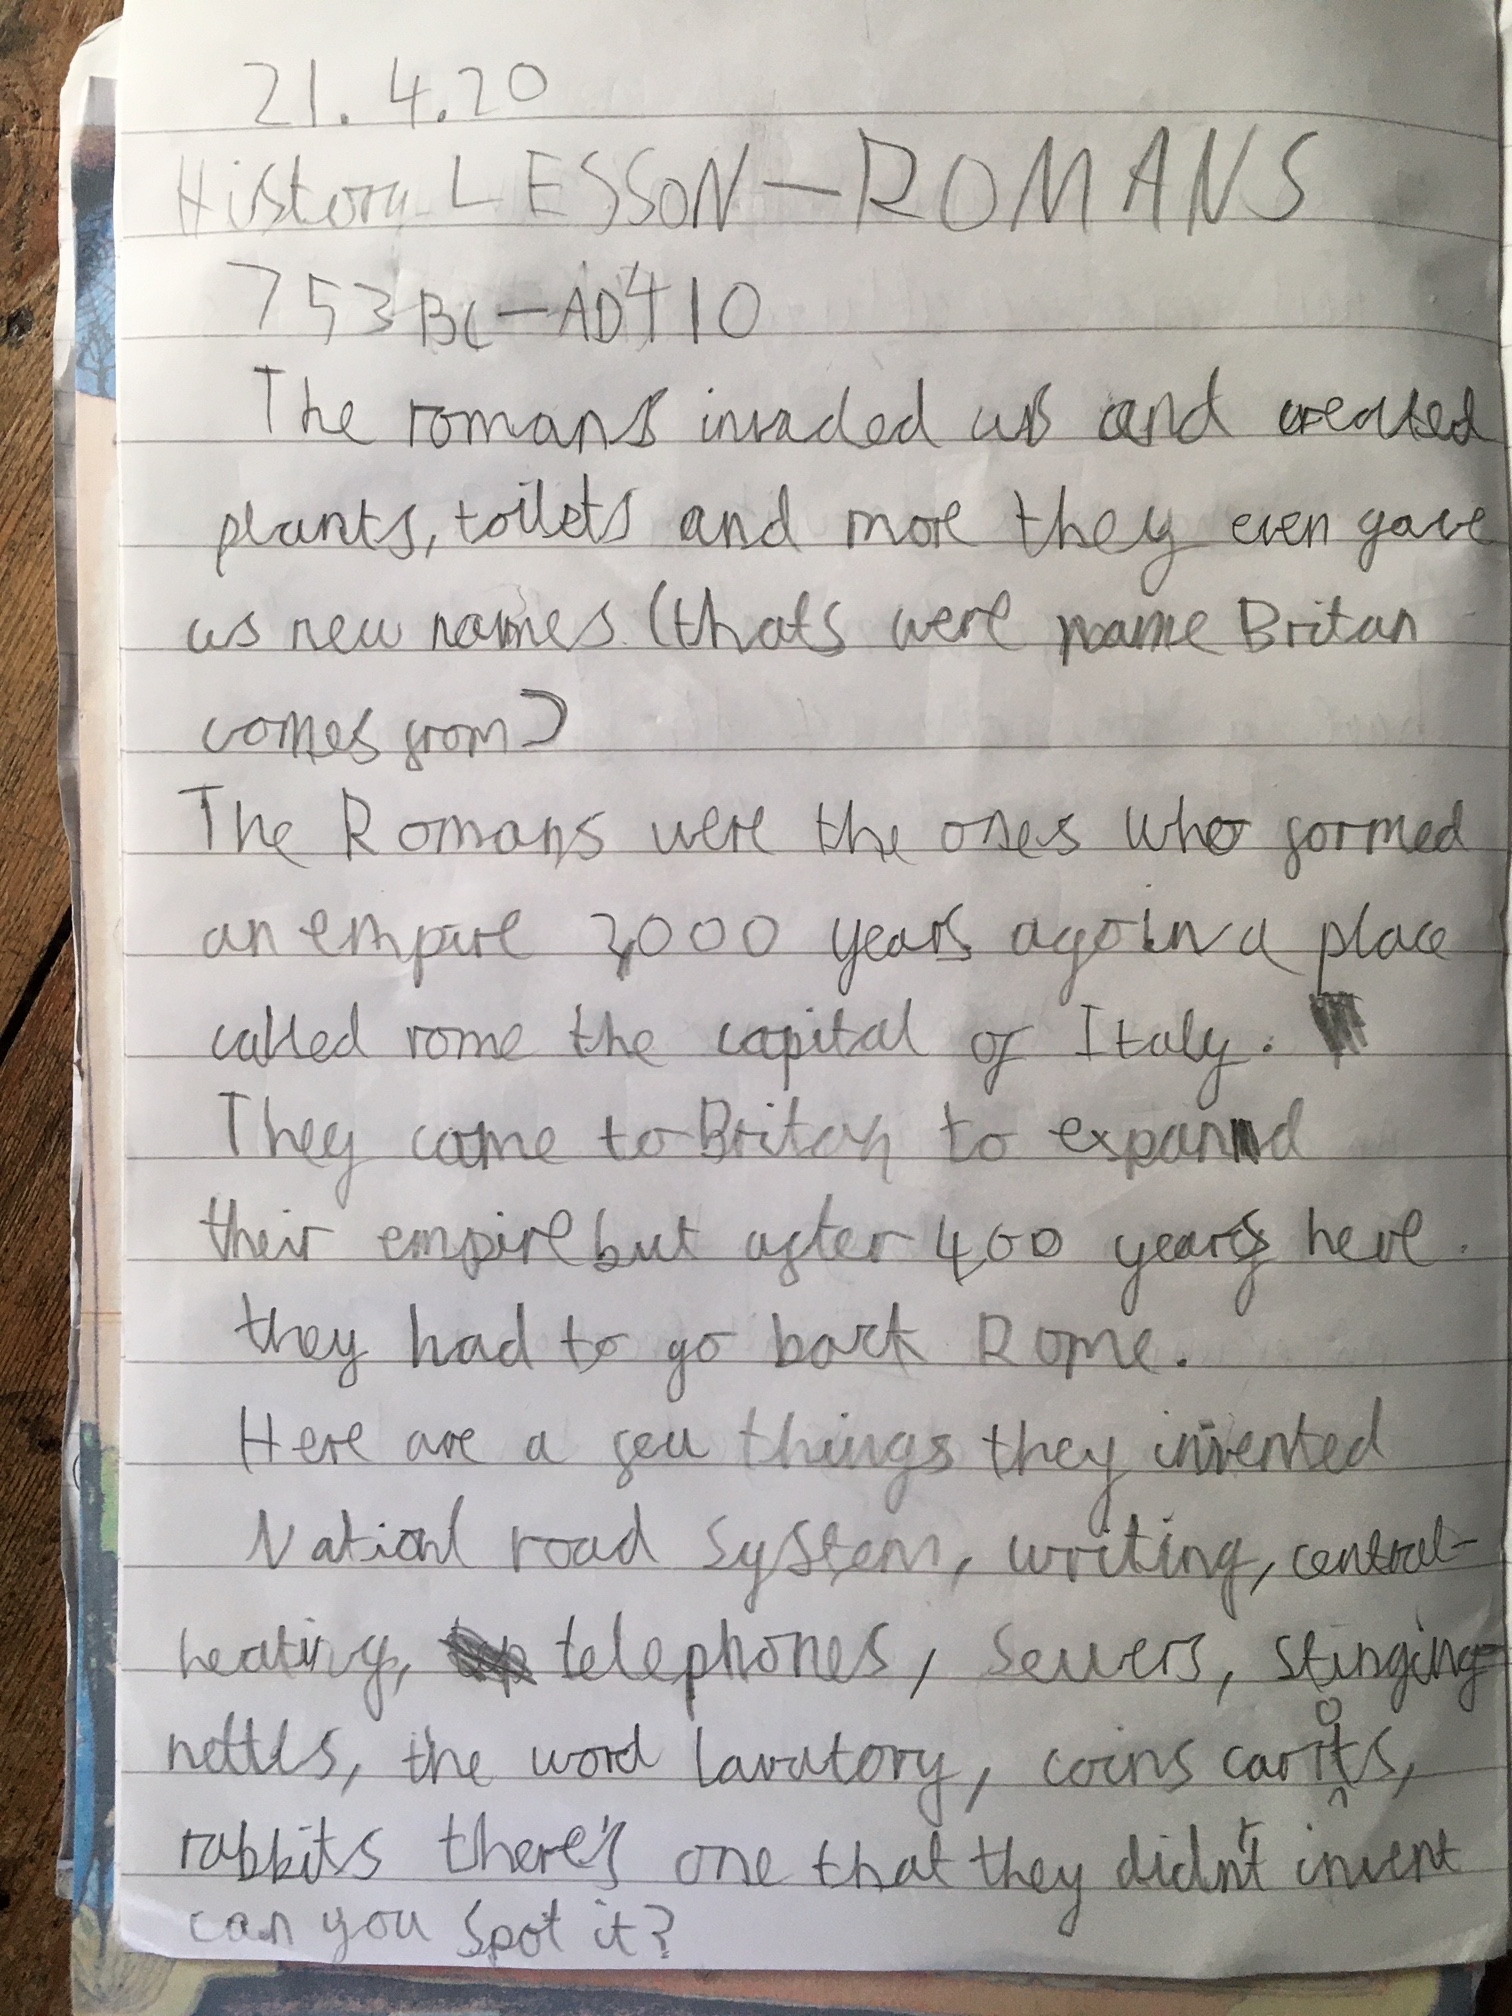 21.4.20
History LESSON - ROMANS
753BC - AD410
The romans invaded us and created
plants, toilets and more they even gave
us new names (thats were name Britan
comes from)
The Romans were the ones who formed
an empire 2,000 years ago in a place
called rome the capital of Italy.
They came to Britan to expand
their empire but after 400 years here.
they had to go back Rome.
Here are a few things they invented
National road system, writing, central-
heating, telephones, sewers, stinging-
nettles, the word lavatory, coins carrots,
rabbits there's one that they didn't invent
can you spot it?